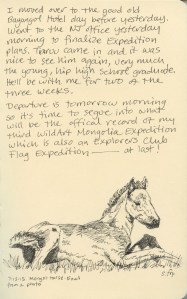 I moved over to the good old
Bayangol Hotel day before yesterday.
Went to the NT office yesterday
morning to finalize Expedition
plans. Tseru came in and it was
nice to see him again, very much
the young, hip high school graduate.
He'll be with me for two of the
three weeks.
Departure is tomorrow morning
so it's time to segue into what
will be the official record of my
third WildArt Mongolia Expedition
which is also an Explorers Club
Flag Expedition—at last!
7-13-15 Mongol Horse-
from a photo